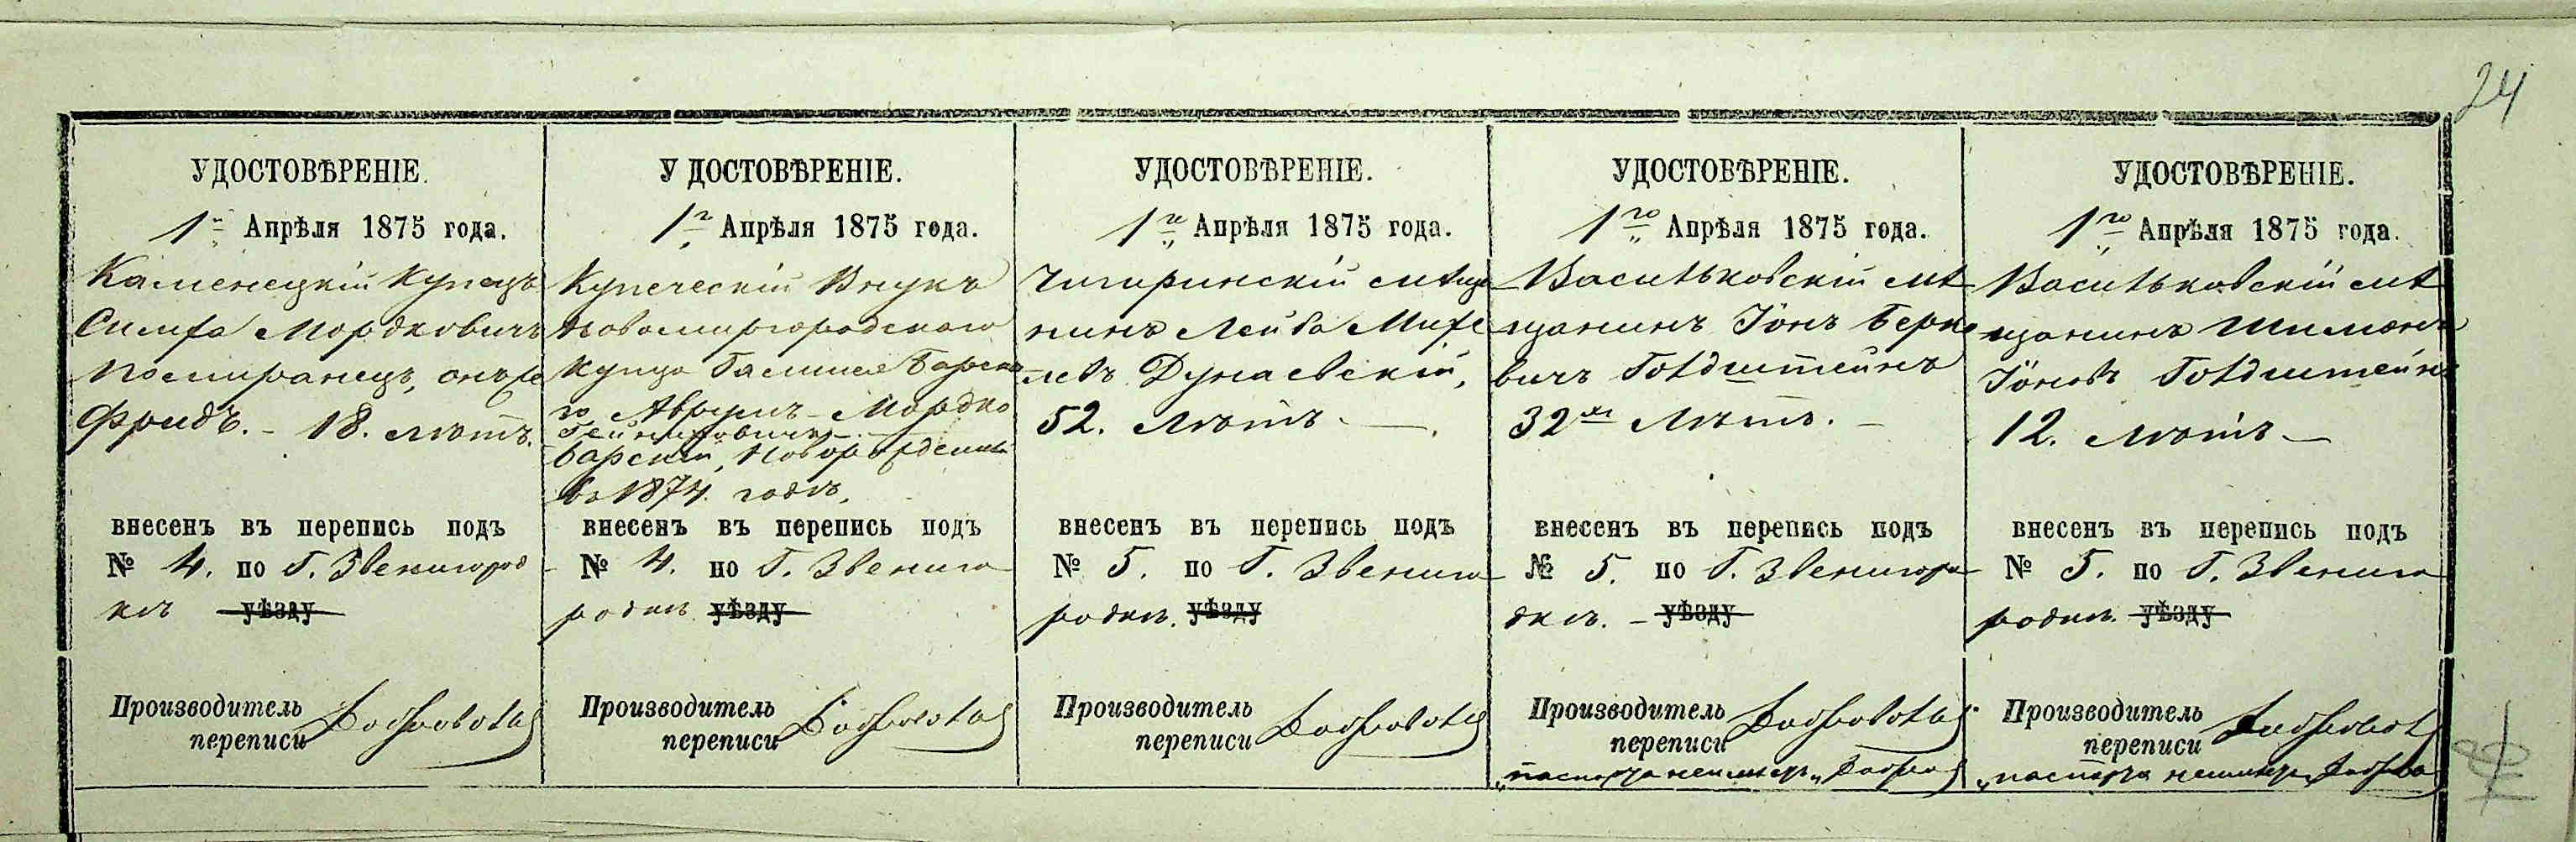 24
УДОСТОВѢРЕНІЕ.
1го Апрѣля 1875 года.
Каменецкій Купецъ
Симха Мордковичъ
Помиранецъ, онъ же
Фридъ. - 18. лѣтъ.
внесенъ въ перепись подъ
№ 4. по Г. Звенигород
кѣ уѣзду
Производитель
переписи
УДОСТОВѢРЕНІЕ.
1го Апрѣля 1875 года.
Купеческій Внукъ
Новомиргородскаго
Купца Барска
го Аврумъ-Мордко
Барскій, Новорожденный
въ 1874. годѣ,
внесенъ въ перепись подъ
№ 4. по Г. Звениго
родкѣ уѣзду
Производитель
переписи
УДОСТОВѢРЕНІЕ.
1го Апрѣля 1875 года.
Чигиринскій мѣща
нинъ Лейба Михе
левъ Дунаевскій,
52. лѣтъ. —.
внесенъ въ перепись подъ
№ 5. по Г. Звениго
родкѣ. уѣзду
Производитель
переписи
УДОСТОВѢРЕНІЕ.
1го Апрѣля 1875 года.
Васильковскій мѣ
щанинъ Іонъ Берко
вичъ Голдштейнъ
32хъ Лѣтъ. —
внесенъ въ перепись подъ
№ 5. по Г. Звенигоро
дкѣ. — уѣзду
Производитель
переписи
„паспорта неимѣетъ„
УДОСТОВѢРЕНІЕ.
1го Апрѣля 1875 года.
Васильковскій мѣ
щанинъ Шимонъ
Іоновъ Голдштейнъ
12. лѣтъ —
внесенъ въ перепись подъ
№ 5. по Г. Звениго
родкѣ. уѣзду
Производитель
переписи
„паспорта неимѣетъ„